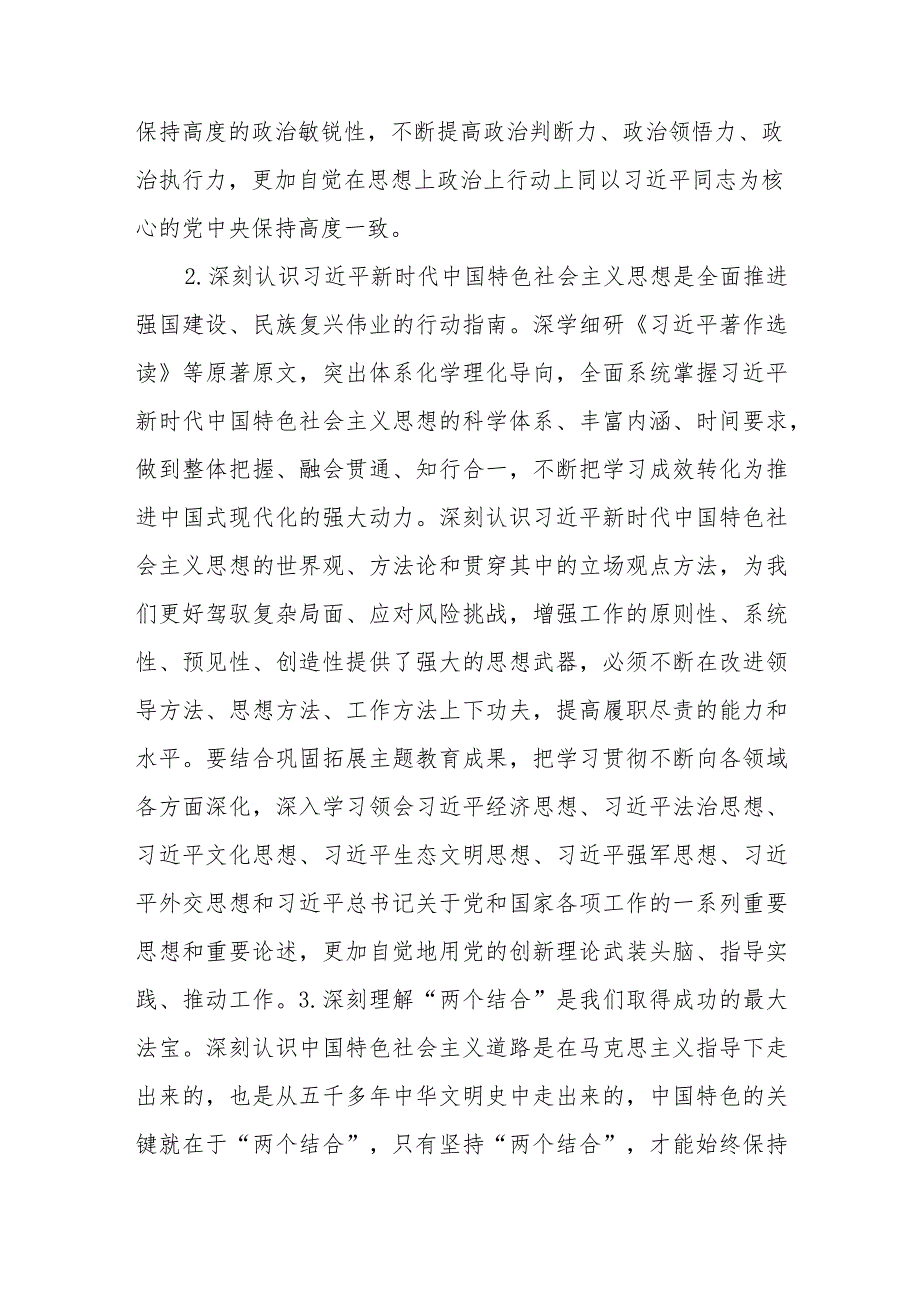 保持高度的政治敏锐性，不断提高政治判断力、政治领悟力、政
治执行力，更加自觉在思想上政治上行动上同以习近平同志为核
心的党中央保持高度一致。
2.深刻认识习近平新时代中国特色社会主义思想是全面推进
强国建设、民族复兴伟业的行动指南。深学细研《习近平著作选
读》等原著原文，突出体系化学理化导向，全面系统掌握习近平
新时代中国特色社会主义思想的科学体系、丰富内涵、时间要求，
做到整体把握、融会贯通、知行合一，不断把学习成效转化为推
进中国式现代化的强大动力。深刻认识习近平新时代中国特色社
会主义思想的世界观、方法论和贯穿其中的立场观点方法，为我
们更好驾驭复杂局面、应对风险挑战，增强工作的原则性、系统
性、预见性、创造性提供了强大的思想武器，必须不断在改进领
导方法、思想方法、工作方法上下功夫，提高履职尽责的能力和
水平。要结合巩固拓展主题教育成果，把学习贯彻不断向各领域
各方面深化，深入学习领会习近平经济思想、习近平法治思想、
习近平文化思想、习近平生态文明思想、习近平强军思想、习近
平外交思想和习近平总书记关于党和国家各项工作的一系列重要
思想和重要论述，更加自觉地用党的创新理论武装头脑、指导实
践、推动工作。3.深刻理解“两个结合”是我们取得成功的最大
法宝。深刻认识中国特色社会主义道路是在马克思主义指导下走
出来的，也是从五千多年中华文明史中走出来的，中国特色的关
键就在于“两个结合”，只有坚持“两个结合”，才能始终保持